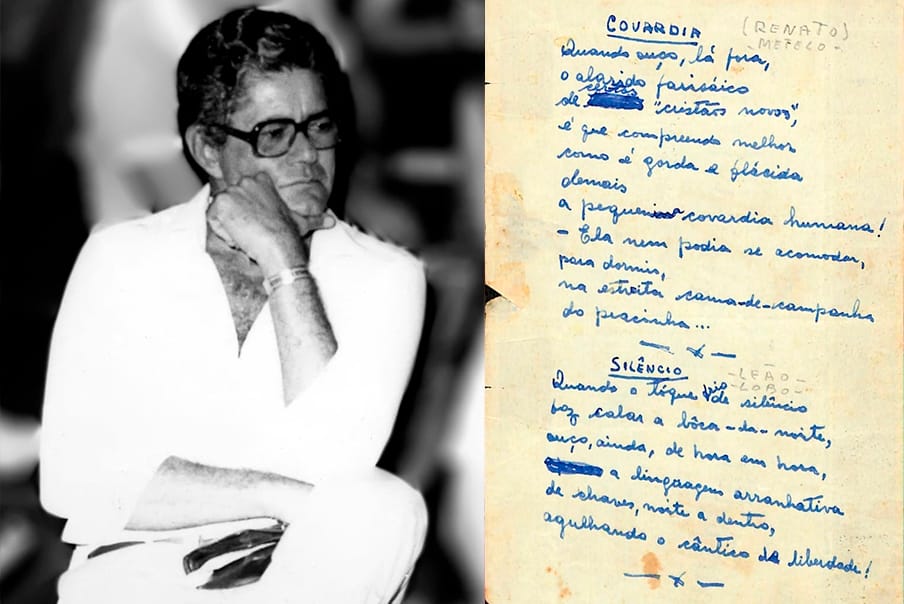 COVARDIA (RENATO)
- METELO -
Quando ouço, lá fora,
o alarido farisáico
de certos "cristãos novos",
é que compreendo melhor
como é gorda e flácida
demais
a pequenina covardia humana!
- Ela nem podia se acomodar,
para dormir,
na estreita cama-de-campanha
do pracinha...
— x —
SILÊNCIO - LEÃO -
- LOBO -
Quando o tóque de silêncio
faz calar a bôca-da-noite,
ouço, ainda, de hora em hora,
a linguagem arranhativa
de chaves, noite a dentro,
agulhando o cântico da liberdade!
— x —